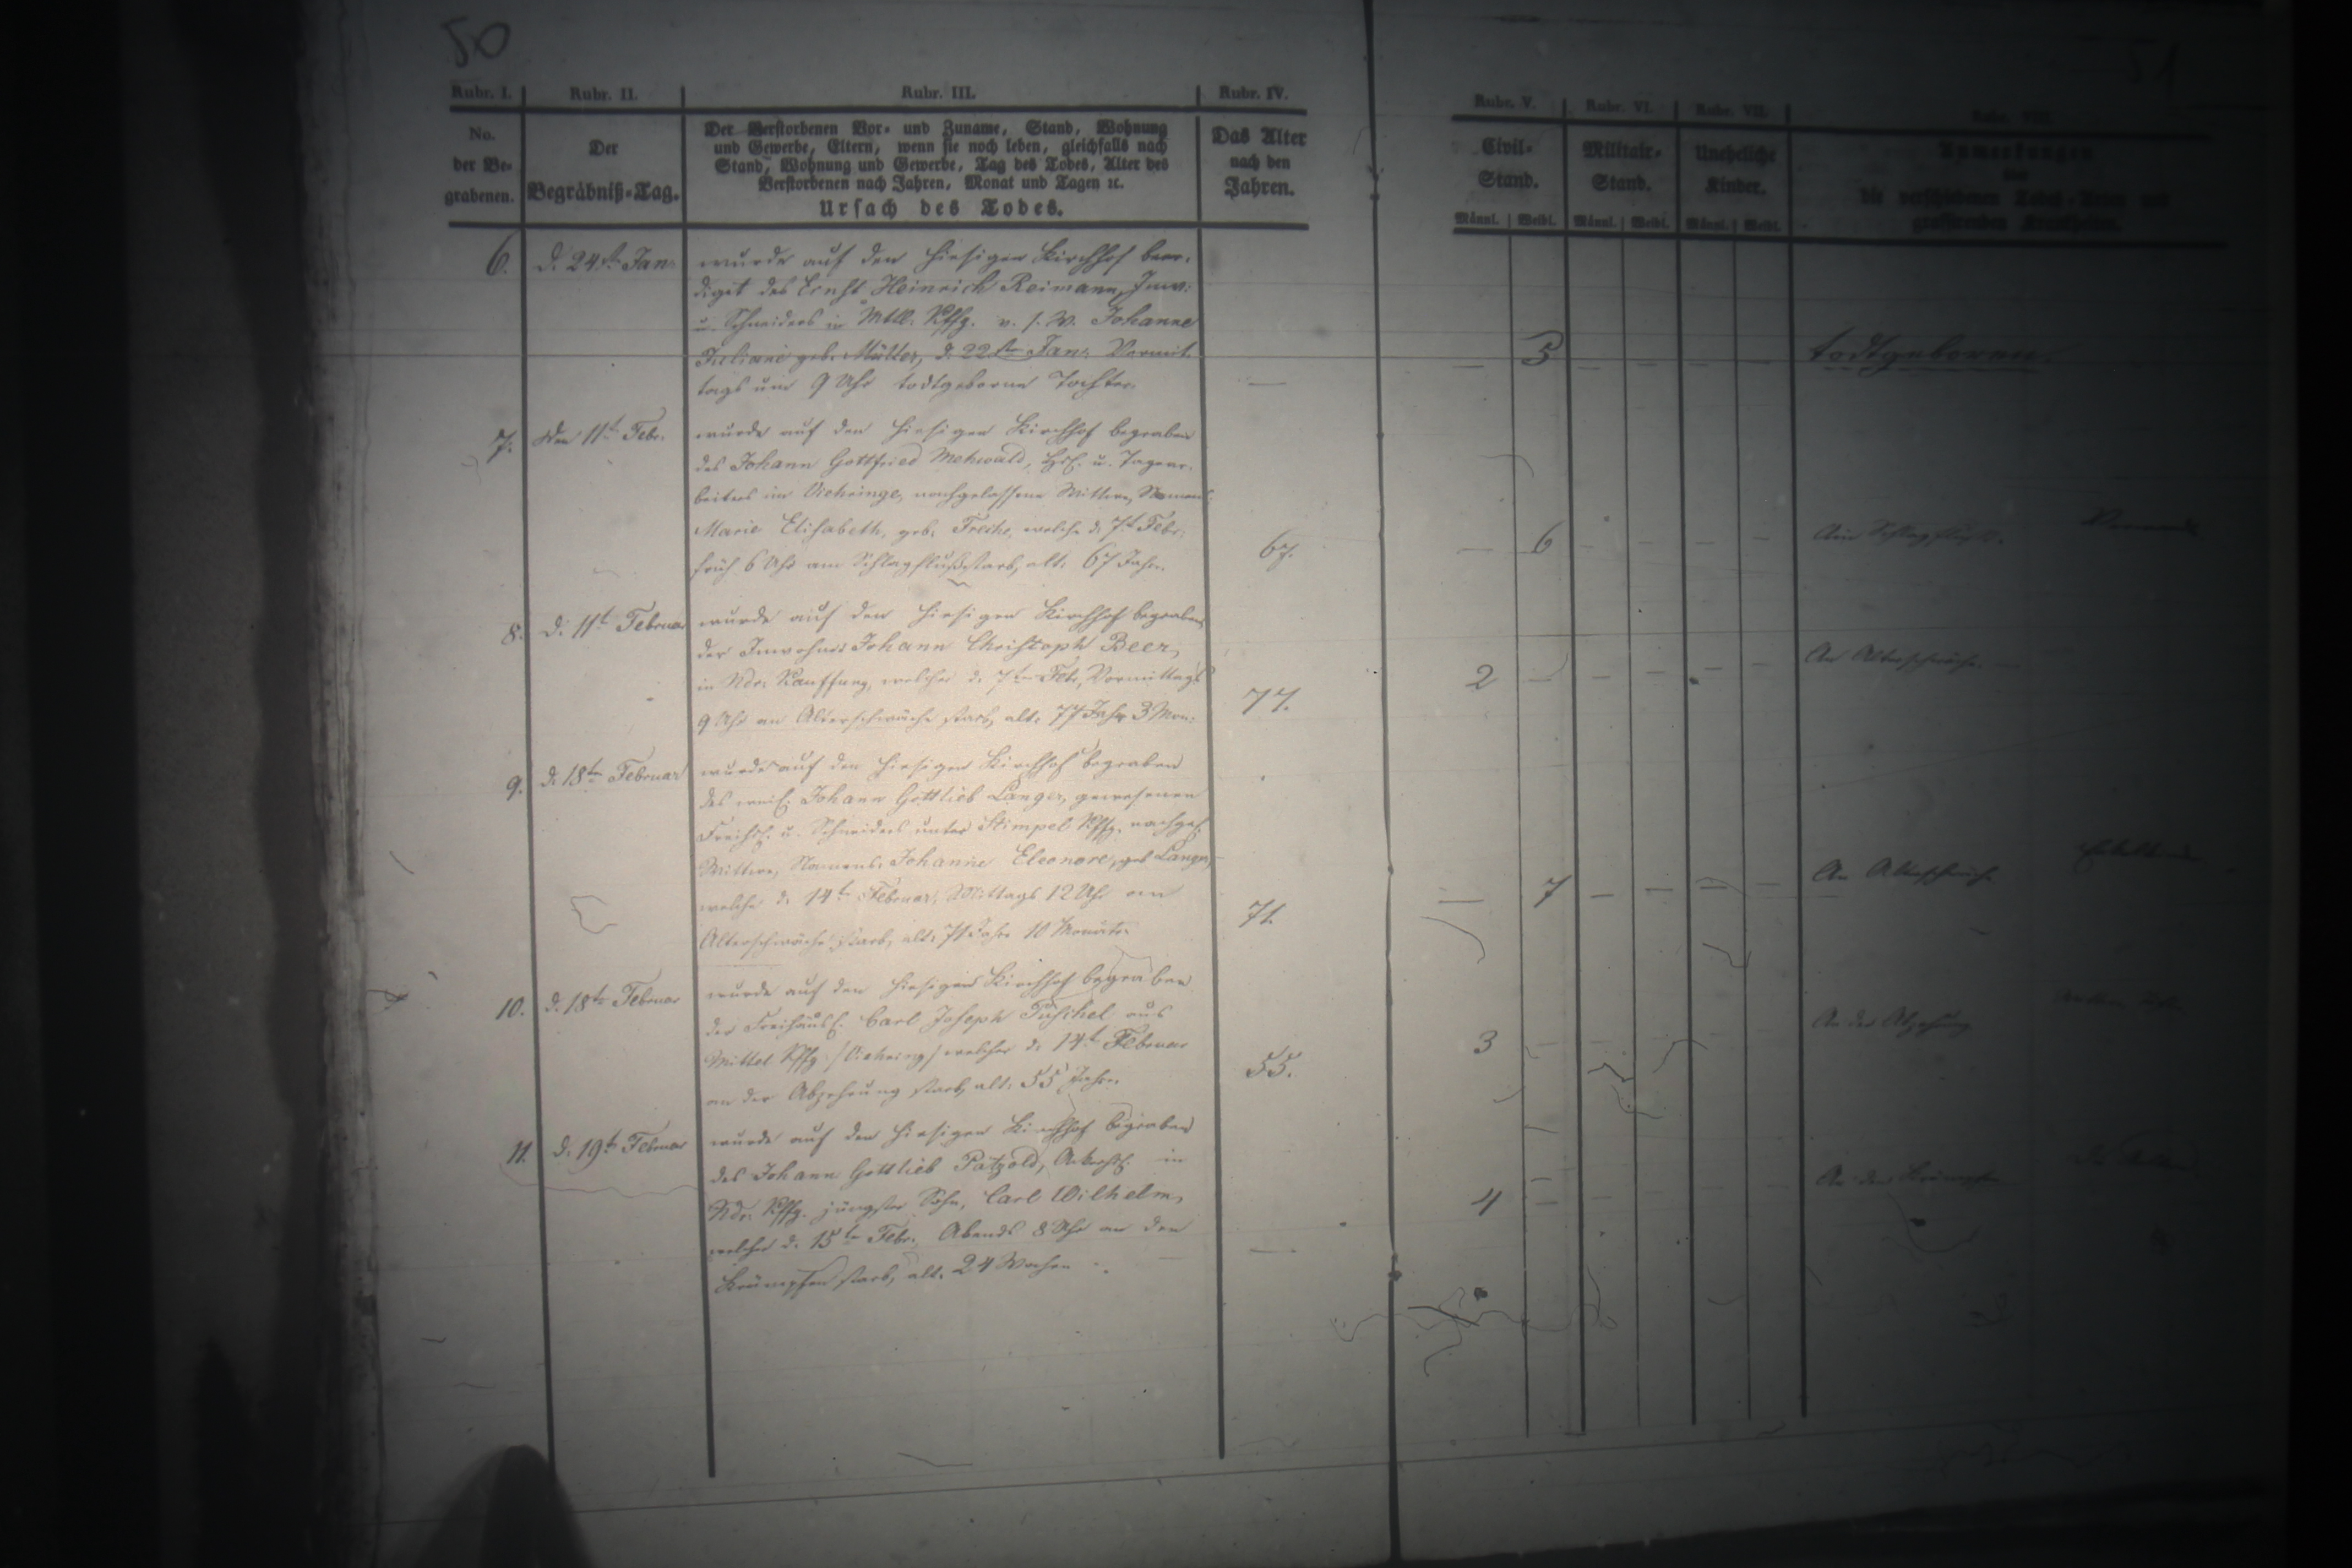 50
Rubr. I. Rubr. II. Rubr. III. Rubr. IV. Rubr. V. Rubr. VI. Rubr. VII. Rubr. VIII.
No. der Be- grabenen.
Der Begräbniß-Tag.
Der Verstorbenen Vor- und Zuname, Stand, Wohnung
und Gewerbe, Eltern, wenn sie noch leben, gleichfalls nach
Stand, Wohnung und Gewerbe, Tag des Todes, Alter des
Verstorbenen nach Jahren, Monat und Tagen ꝛc.
Ursach des Todes.
Das Alter
nach den
Jahren.
Civil-
Stand.
Männl. Weibl.
Militair-
Stand.
Männl. Weibl.
Uneheliche
Kinder.
Männl. Weibl.
Anmerkungen
die verschiedenen Todes-Arten und
grassirenden Krankheiten.
6. d. 24st. Jan.
wurde auf den hiesigen Kirchhof beer-
diget des Ernst Heinrich Reimann, Inw:
u. Schneiders in Mttl. Kffg. v. s. W. Johanne
Juliane geb. Müller, d. 22sten Jan. Vormit-
tags um 9 Uhr todtgeborne Tochter.
— — 5 — — — — todtgeboren.
7. den 11t. Febr.
wurde auf den hiesigen Kirchhof begraben
des Johann Gottfried Mehwald, Hsl. u. Tagear-
beiters im Viehringe, nachgelassene Wittwe, Namens:
Marie Elisabeth, geb. welche d. 7t. Febr.
früh 6 Uhr am Schlagfluß starb, alt: 67 Jahr.
67. — 6 — — — — Am Schlagfluß.
8. d. 11t. Februar
wurde auf den hiesigen Kirchhof begraben
der Inwohner Johann Christoph Beer,
in Ndr. Kauffung, welcher d. 7ten Febr, Vormittags
9 Uhr an Alterschwäche starb, alt: 77 Jahr 3 Mon:
77. 2 — — — — — An Alterschwäche.
9. d. 18ten Februar
wurde auf den hiesigen Kirchhof begraben
des weil. Johann Gottlieb Langer, gewesenen
u. Schneiders unter Stimpel Kffg. nachgel.
Wittwe, Namens: Johanne Eleonore, geb. Langer,
welche d. 14ten Februar, Mittags 12 Uhr an
Alterschwäche starb, alt: 71 Jahre 10 Monate.
71. — 7 — — — — An Alterschwäche
10. d. 18ten Februar
wurde auf den hiesigen Kirchhof begraben
der Freihäusl. Carl Joseph aus
Mittel Kffg. welcher d. 14t. Februar
an der Abzehrung starb, alt: 55 Jahre.
55. 3 An der Abzehrung
11. d. 19t. Februar
wurde auf den hiesigen Kirchhof begraben
des Johann Gottlieb Pätzold, in
Ndr. Kffg. jüngster Sohn, Carl Wilhelm,
welcher d. 15ten Febr. Abends 8 Uhr an den
Krämpfen starb, alt. 24 Wochen
— 4 — An den Krämpfen